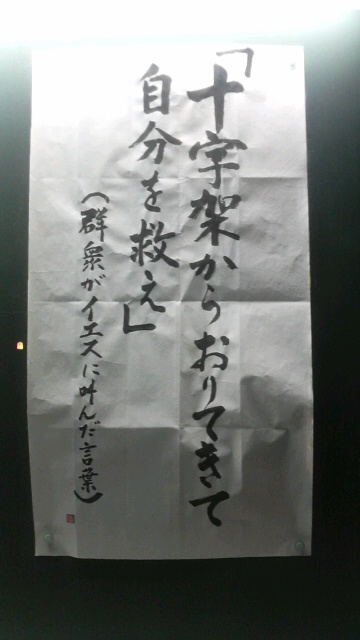 「十字架からおりてきて
自分を救え」
(群衆がイエスに叫んだ言葉)